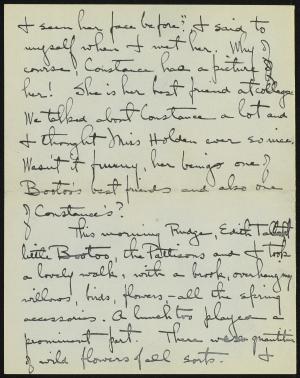 I seen her face before". I said to
myself when I met her. Why of
course, Constance has a picture of
her! She is her best friend at college
We talked about Constance a lot and
I thought Miss Holden ever so nice.
Wasn't it funny, her being one of
Bootoo's best friends and also one
of Constance's?
This morning Pudge, Edith Talbot
little Bootoo, the Pattisons and I took
a lovely walk, with a brook, overhanging
willows, birds, flowers,—all the spring
accessories. A lunch too played a
prominent part. There were quantities
of wild flowers of all sorts. I